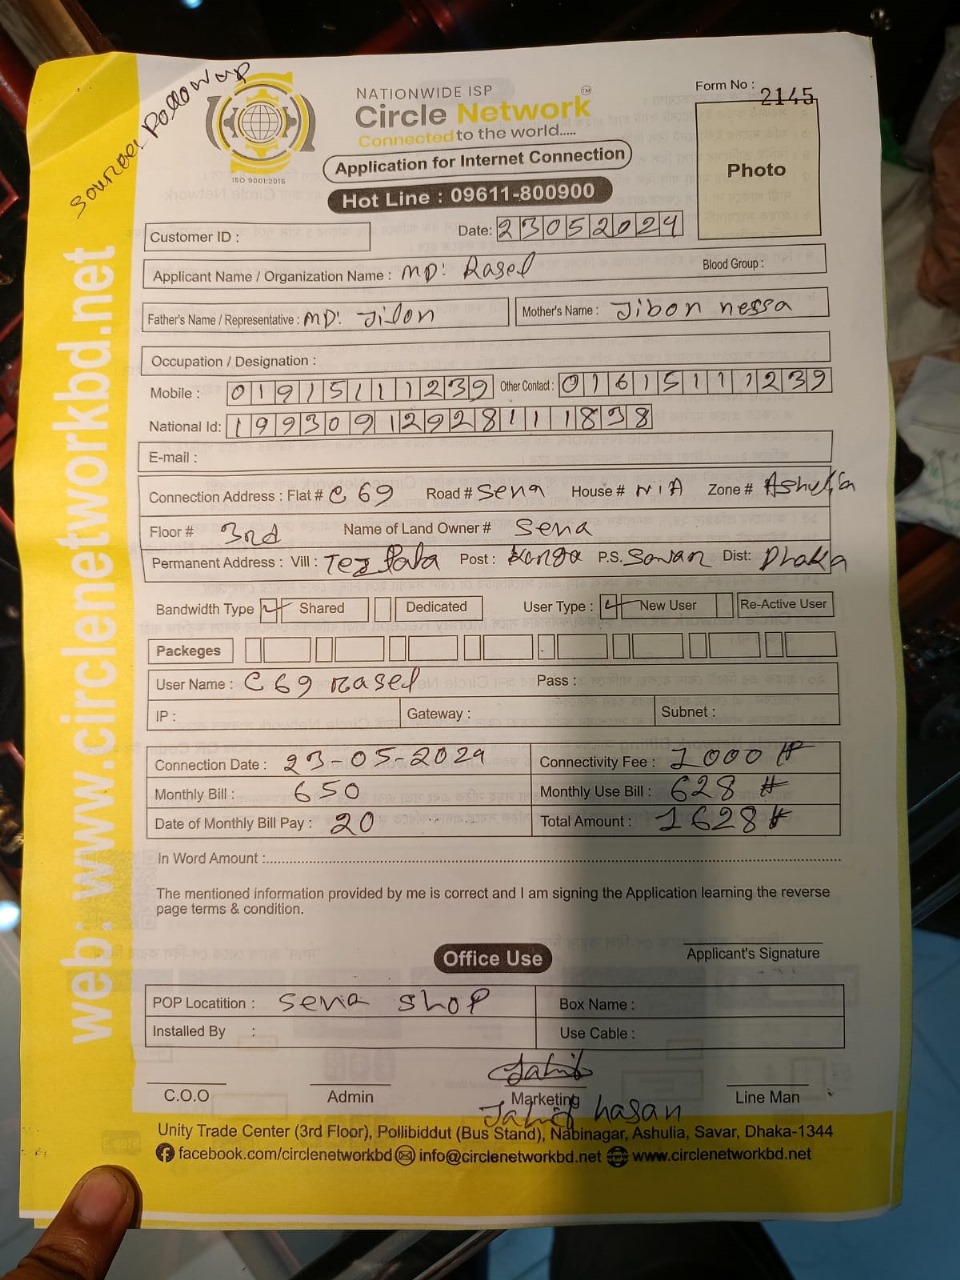 NATIONWIDE ISP
Circle Network
Connected to the world.....
Form No : 2145
ISO 9001:2015
Application for Internet Connection
Photo
Hot Line : 09611-800900
Customer ID :
Date: 23052024
Applicant Name / Organization Name : MD: Rasel Blood Group :
Father's Name / Representative : MD: Jilon Mother's Name : Jibon nessa
Occupation / Designation :
Mobile : 01915111239 Other Contact : 01615111239
National Id: 19930912928111898
E-mail :
Connection Address : Flat # C 69 Road # Sena House # N/A Zone # Ashulia
Floor # 3rd Name of Land Owner # Sena
Permanent Address : Vill : Post : P.S. Dist: Dhaka
Bandwidth Type Shared Dedicated User Type : New User Re-Active User
Packeges
User Name : C 69 Rasel Pass :
IP : Gateway : Subnet :
Connection Date : 23-05-2024 Connectivity Fee : 1000 #
Monthly Bill : 650 Monthly Use Bill : 628 #
Date of Monthly Bill Pay : 20 Total Amount : 1628 #
In Word Amount :
The mentioned information provided by me is correct and I am signing the Application learning the reverse
page terms & condition.
Applicant's Signature
Office Use
POP Locatition : Sena Shop Box Name :
Installed By : Use Cable :
C.O.O Admin Marketing Line Man
hasan
Unity Trade Center (3rd Floor), Pollibiddut (Bus Stand), Nabinagar, Ashulia, Savar, Dhaka-1344
facebook.com/circlenetworkbd info@circlenetworkbd.net www.circlenetworkbd.net
web: www.circlenetworkbd.net